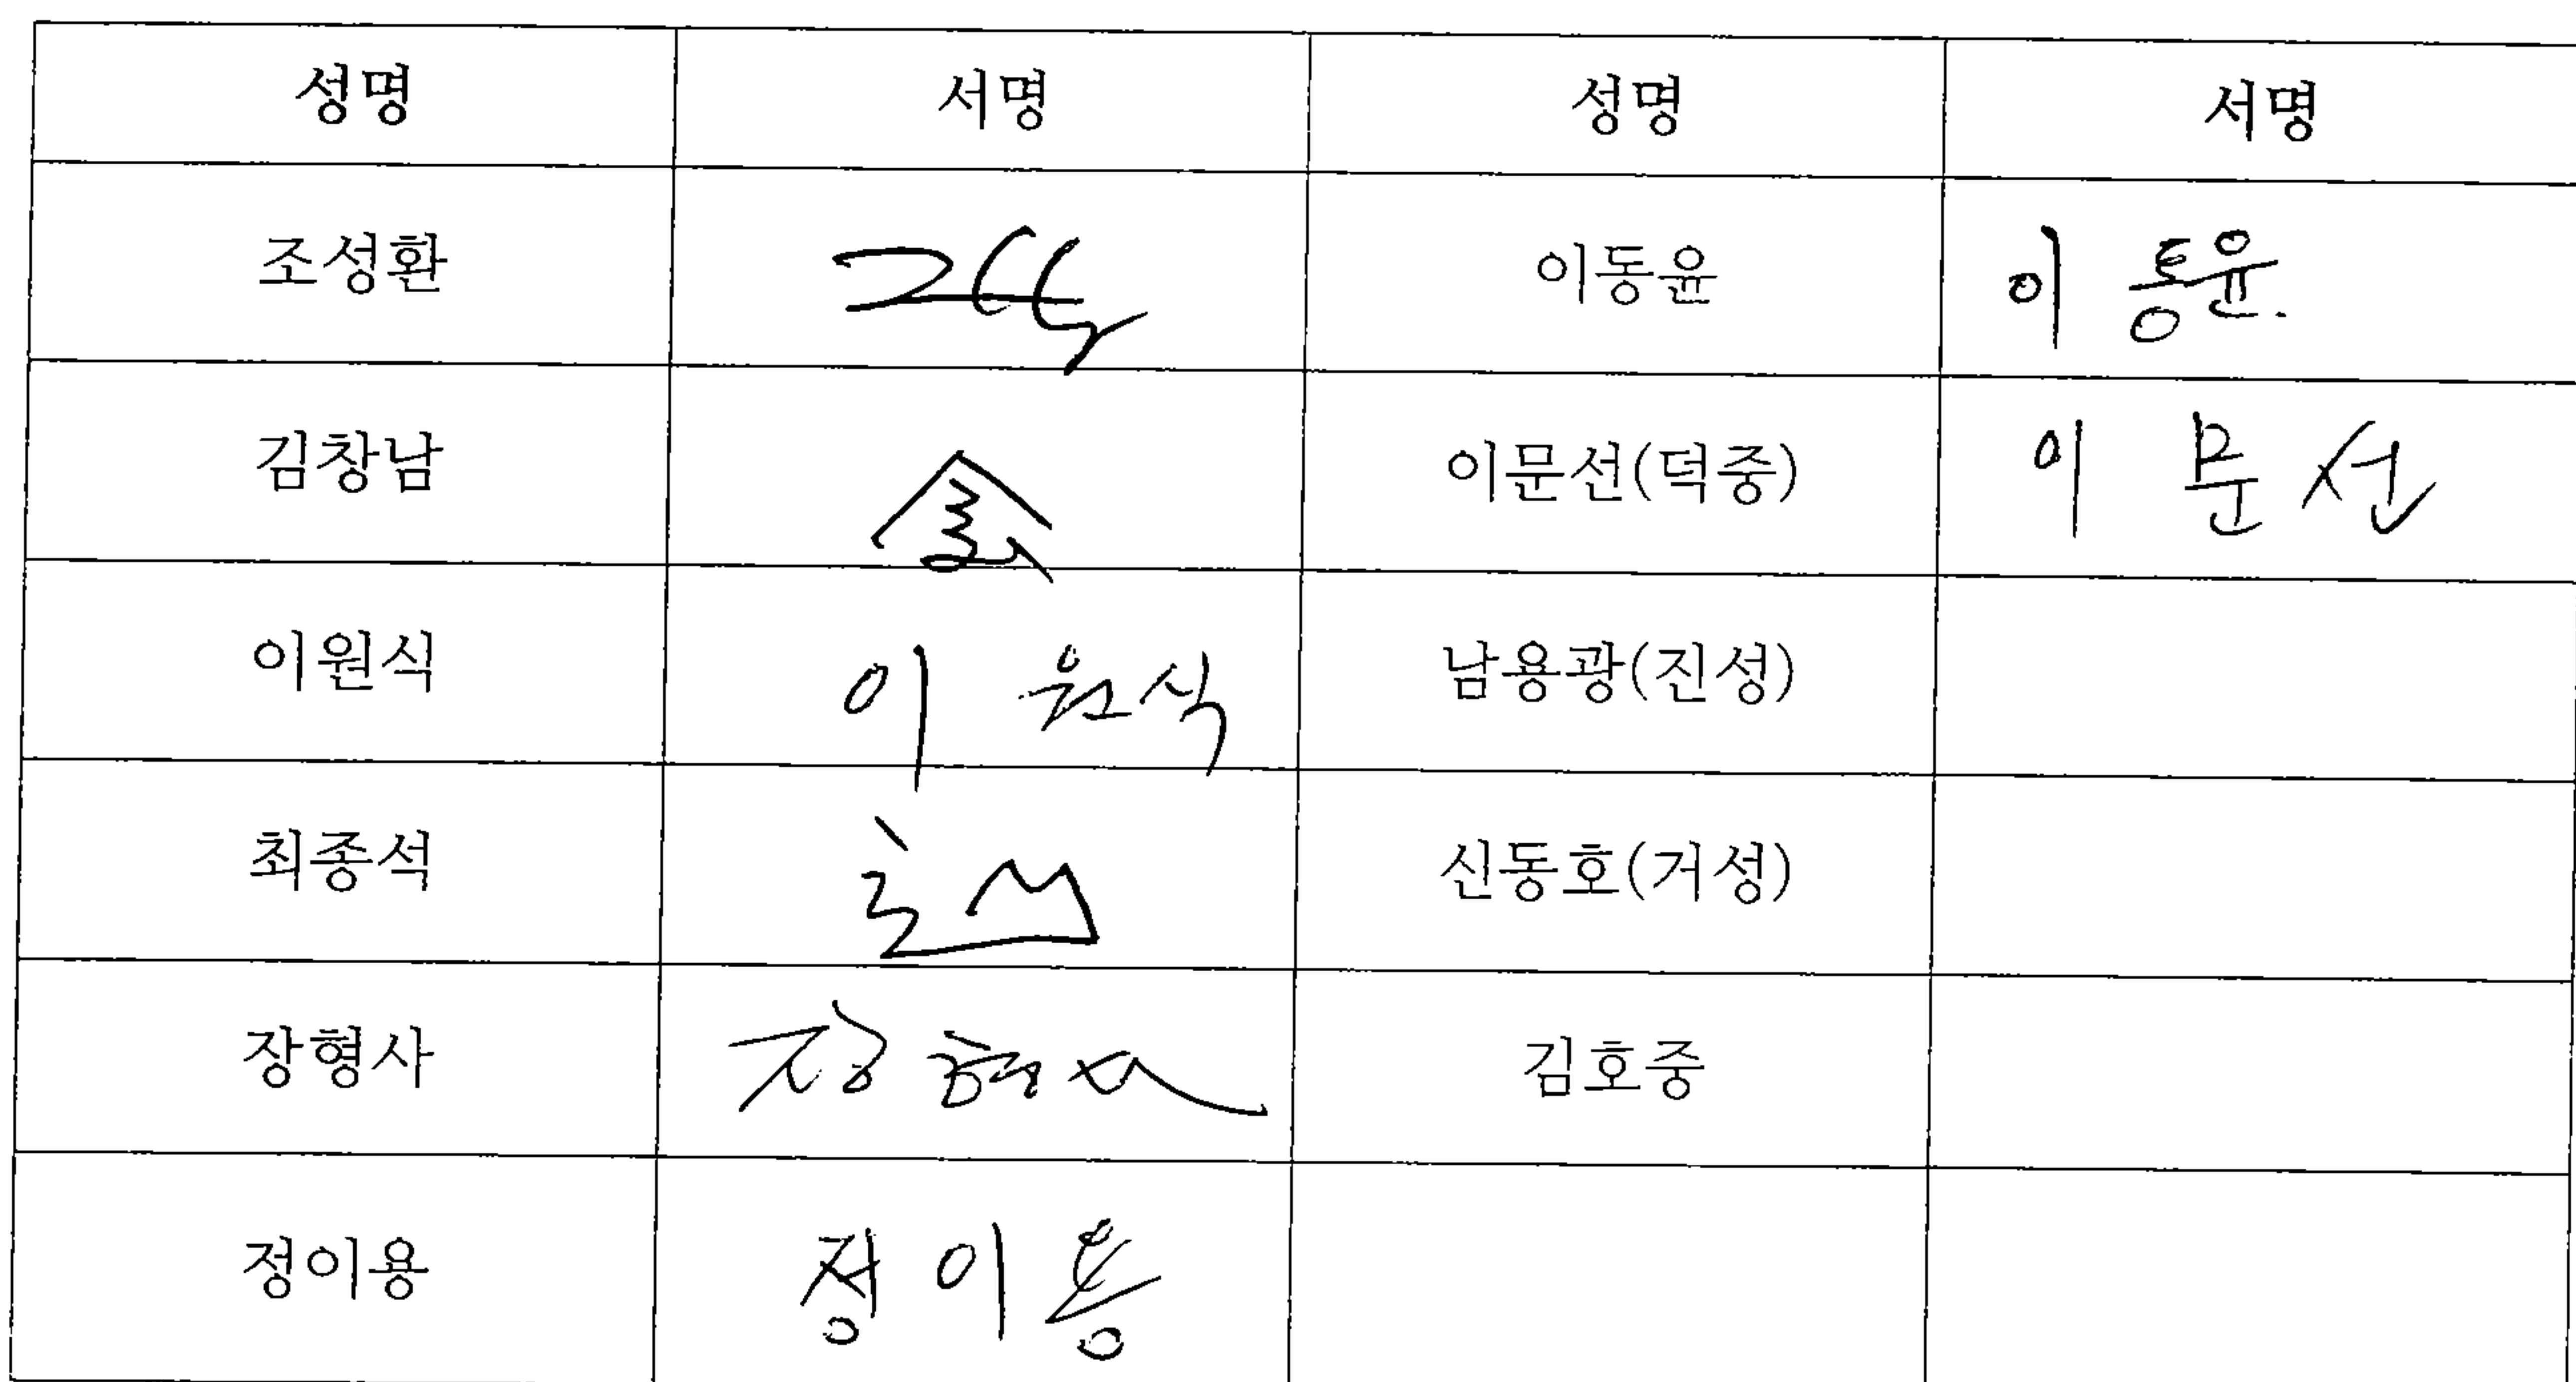 성명 서명 성명 서명
조성환 이동윤 이동윤.
김창남 이문선(덕중) 이 문 선
이원식 이 원식 남용광(진성)
최종석 신동호(거성)
장형사 장형사 김호중
정이용 정이용